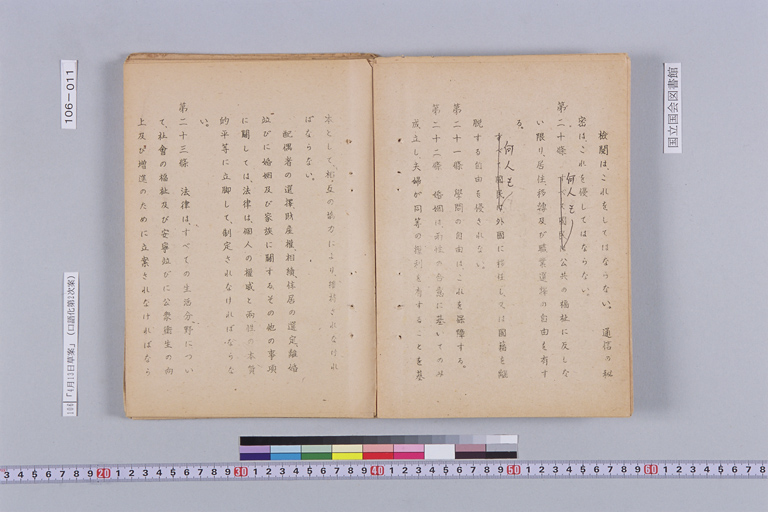 檢閲は、これをしてはならない。通信の秘
密は、これを侵してはならない。
第二十條 すべて國民は公共の福祉に反しな
何人も
い限り、居住、移轉及び職業選擇の自由を有す
る。
すべて國民は外國に移住し、又は國籍を離
何人も
脱する自由を侵されない。
第二十一條 學問の自由は、これを保障する。
第二十二條 婚姻は、両性の合意に基いてのみ
成立し、夫婦が同等の權利を有することを基
本として、相互の協力により、維持されなけれ
ばならない。
配偶者の選擇、財産權、相續、住居の選定、離婚
並びに婚姻及び家族に關するその他の事項
に關しては、法律は、個人の權威と両性の本質
的平等に立脚して、制定されなければならな
い。
第二十三條 法律は、すべての生活分野につい
て、社會の福祉及び安寧並びに公衆衛生の向
上及び増進のために立案されなければなら
国立国会図書館
106-011
106 「4月13日草案」(口語化第2次案)
3 4 5 6 7 8 9 20 1 2 3 4 5 6 7 8 9 30 1 2 3 4 5 6 7 8 9 40 1 2 3 4 5 6 7 8 9 50 1 2 3 4 5 6 7 8 9 60 1 2 3 4 5 6 7 8